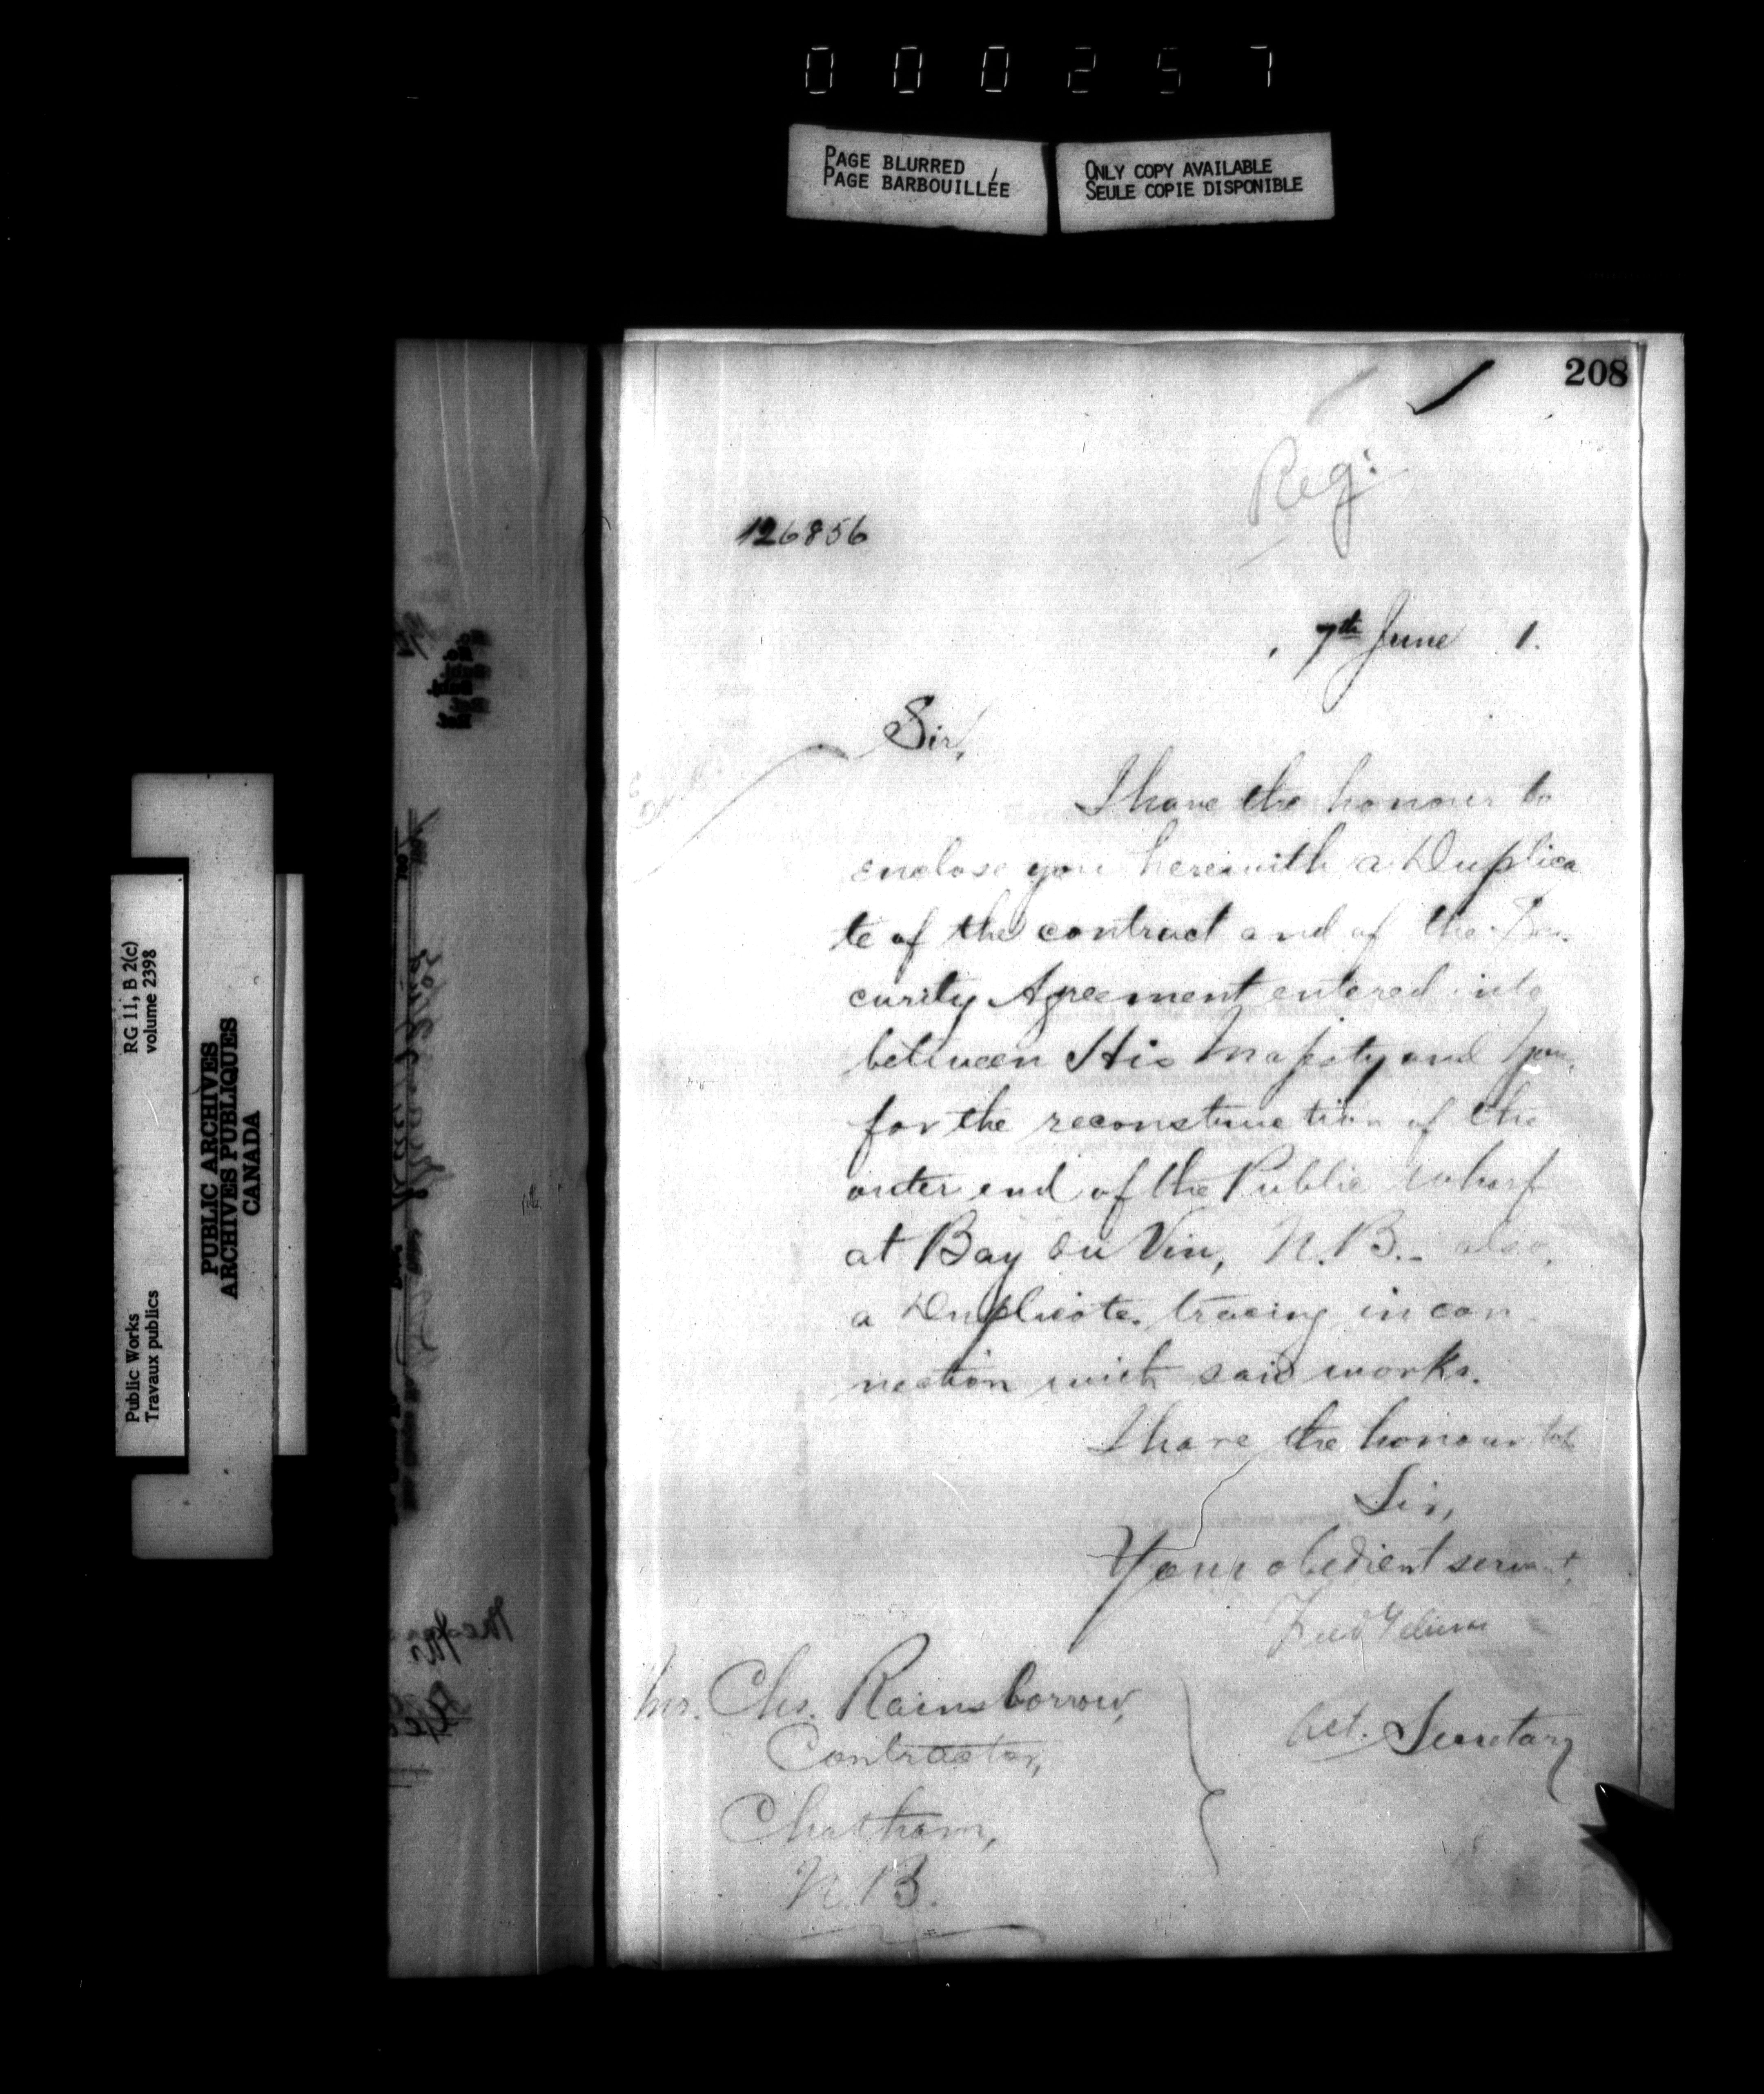 000257
PAGE BLURRED
PAGE BARBOUILLÉE
ONLY COPY AVAILABLE
SEULE COPIE DISPONIBLE
208
Reg:
126856
7th June 1.
Sir,
I have the honour to
enclose you herewith a Duplica
te of the contract and of the Se-
curity Agreement entered into
between His Majesty and you,
for the reconstruction of the
outer end of the Public wharf
at Bay du Vin, N.B. - also,
a Duplicate tracing in con
nection with said works.
I have the honour to be
Sir,
Your obedient servant,
Fred Gélinas
Act. Secretary
Mr. Chs. Rainsborrow,
Contractor,
Chatham,
N.B.
RG 11, B 2(c)
volume 2398
PUBLIC ARCHIVES
ARCHIVES PUBLIQUES
CANADA
Public Works
Travaux publics